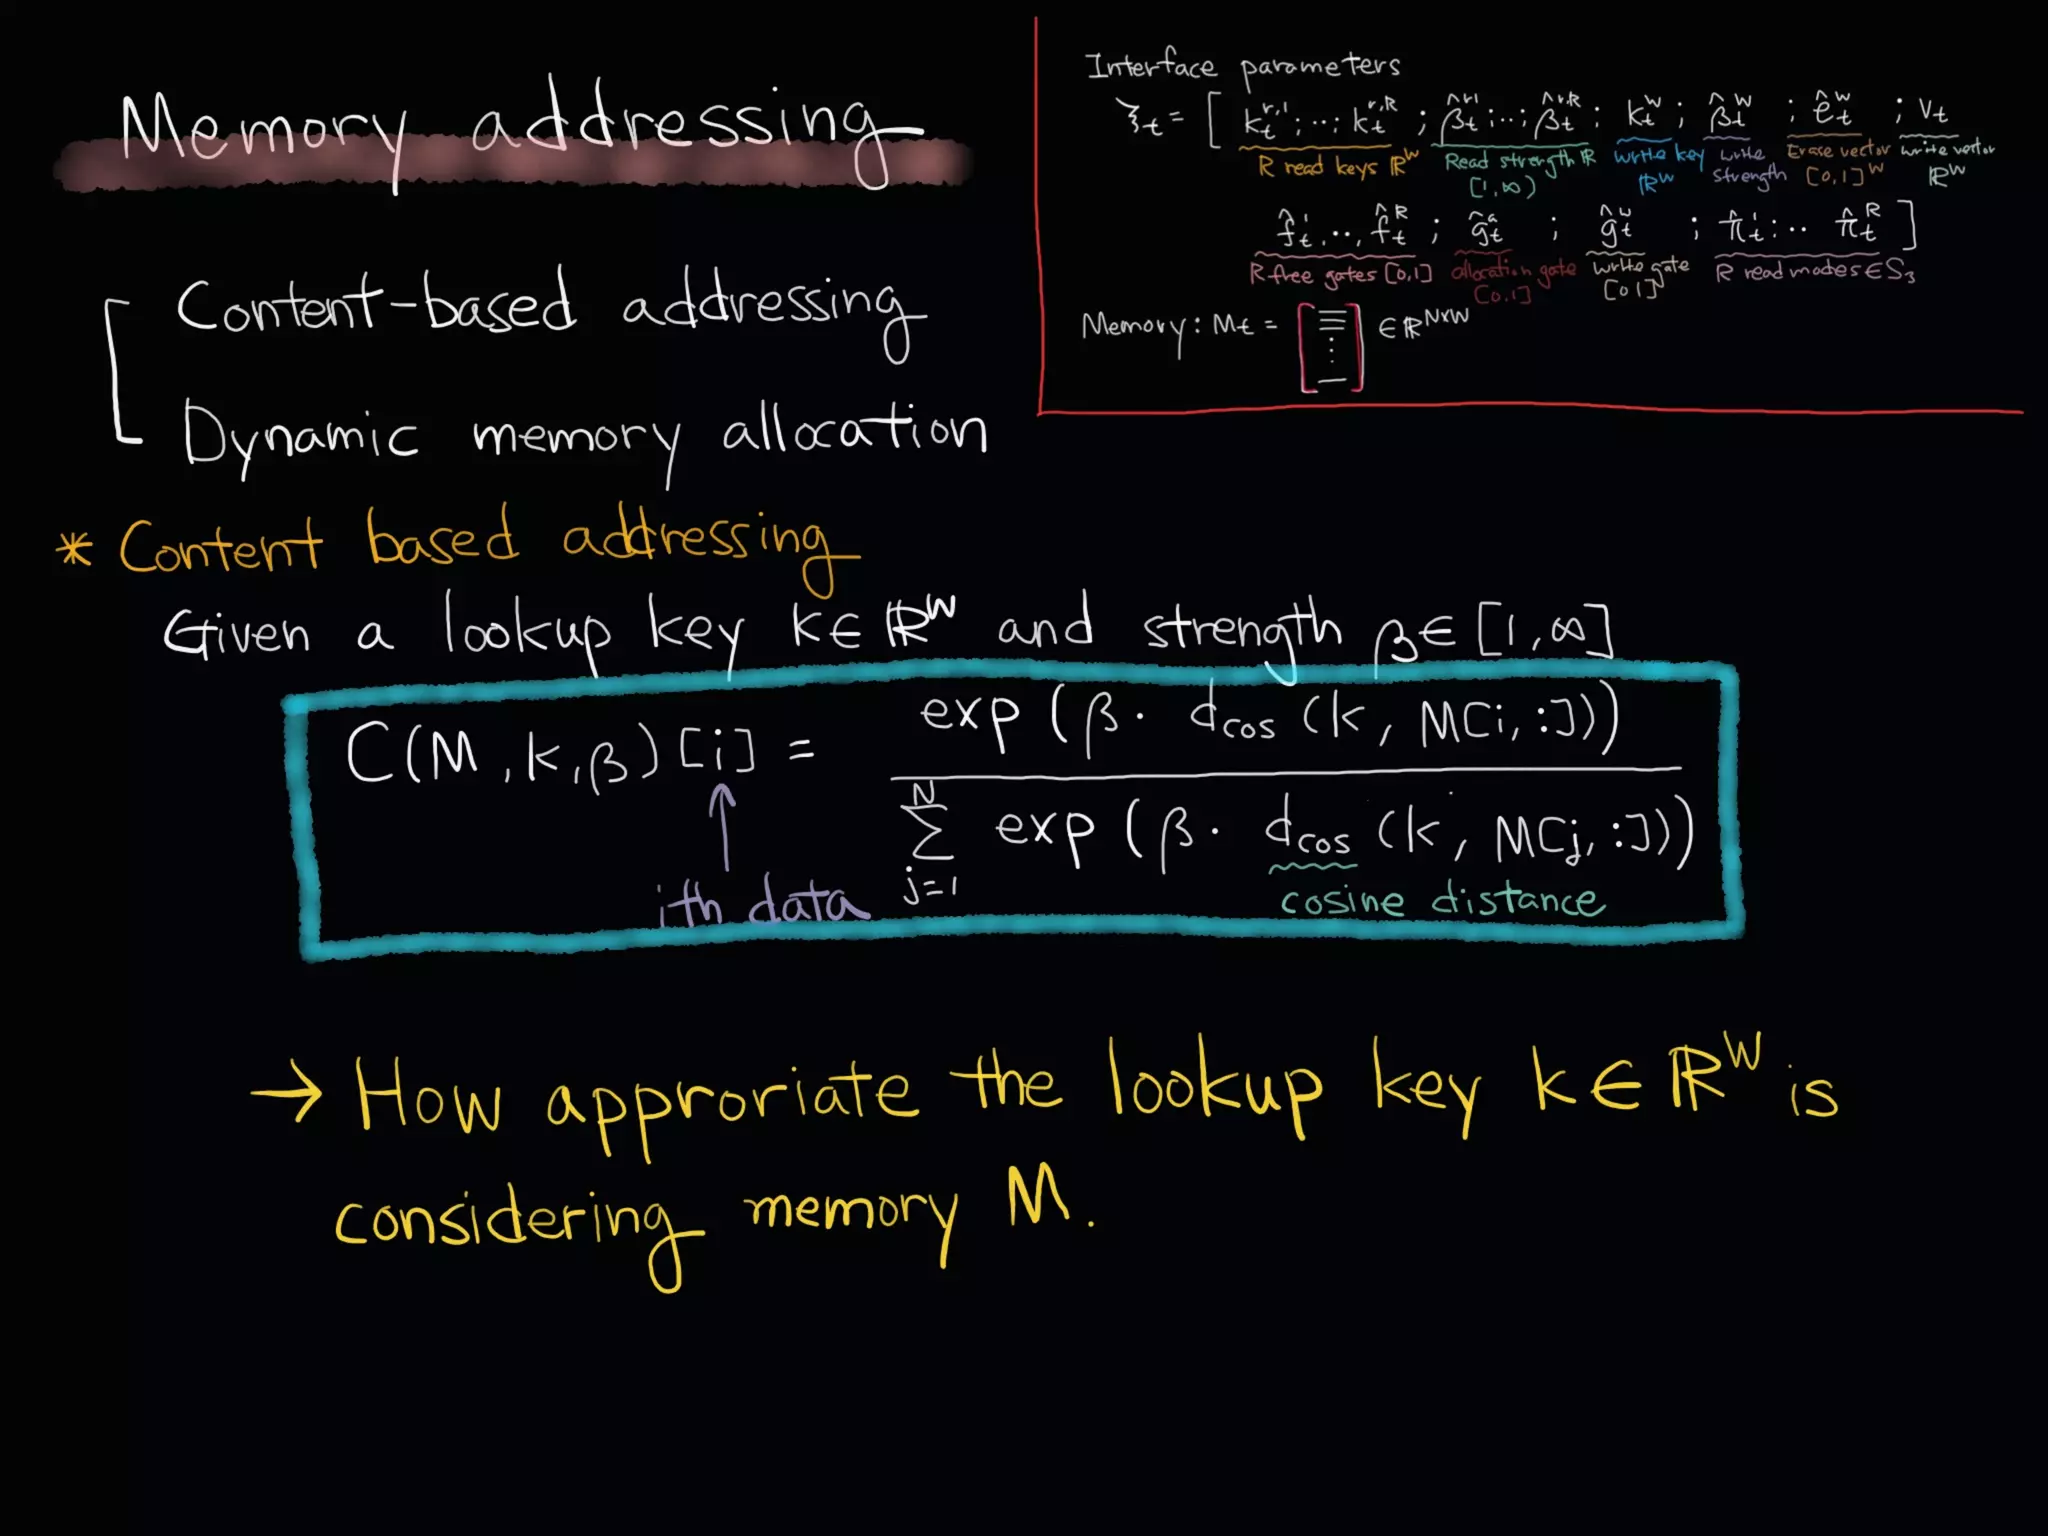 Memory addressing
Content-based addressing
Dynamic memory allocation
Interface parameters
ξt = [ kt^r,1 ; ‥ ; kt^r,R ; β̂t^r,1 ; ‥ ; β̂t^r,R ; kt^w ; β̂t^w ; êt^w ; Vt
R read keys ℝ^W Read strength R [1,∞) write key ℝ^W write strength Erase vector [0,1]^W write vector ℝ^W
f̂t^1, ‥, f̂t^R ; ĝt^a ; ĝt^w ; π̂t^1 ; ‥ π̂t^R ]
R free gates [0,1] allocation gate [0,1] write gate [0 1] R read modes ∈ S3
Memory : Mt = [ ⋮ ] ∈ ℝ^N×W
* Content based addressing
Given a lookup key k ∈ ℝ^W and strength β ∈ [1,∞]
C(M, k, β)[i] = exp(β · dcos(k, M[i, :])) / Σ_{j=1}^{N} exp(β · dcos(k, M[j, :]))
ith data
cosine distance
→ How approriate the lookup key k ∈ ℝ^W is
considering memory M.